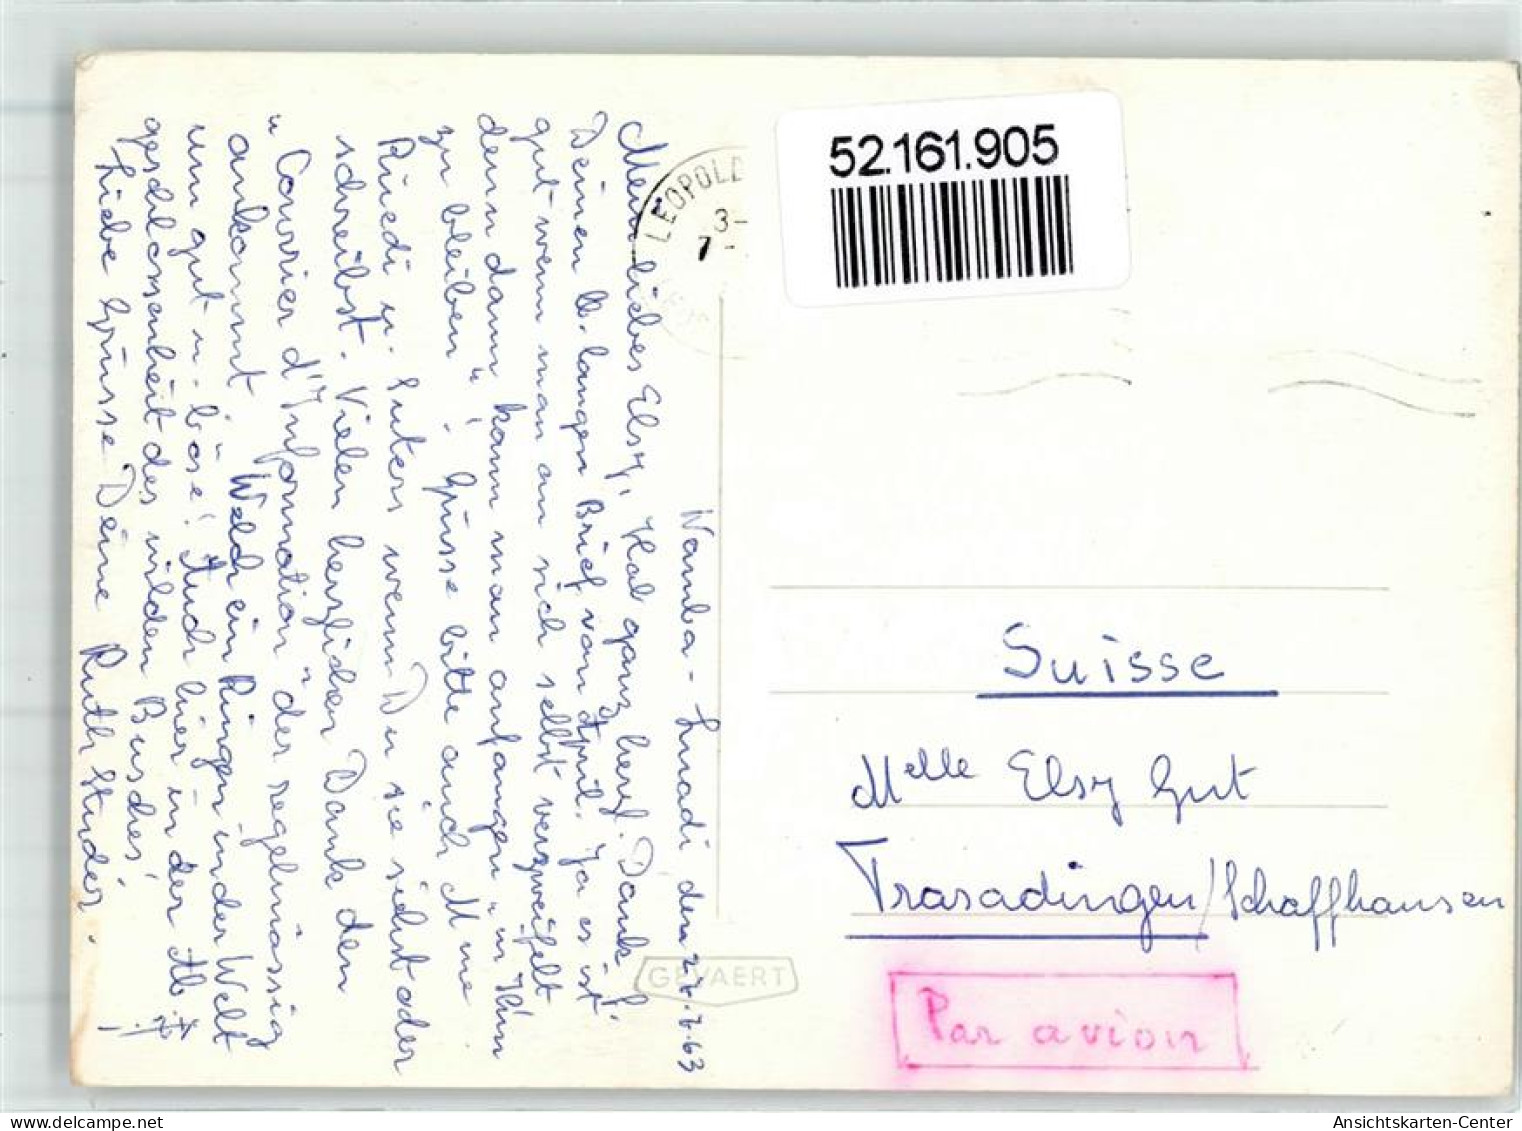 52.161.905
LEOPOLD
3-
7-
Namba-Luadi den 24.7.63
Mein liebes Elsy, Hab ganz herzl. Dank f.
Deinen lb. langen Brief vom April. Ja es ist
gut wenn man an sich selbst verzweifelt
denn dann kann man anfangen "in Ihm
zu bleiben"! Grüsse bitte auch Mme
Rüedi u. Suters wenn Du sie siehst oder
schreibst. Vielen herzlichen Dank den
"Courrier d'Information" der regelmässig
ankommt. Welch ein Ringen in der Welt
um gut u. böse! Auch hier in der
geschlossenheit des wilden Busches!
Liebe Grüsse Deine Ruth Studer.
Suisse
Melle Elsy Gut
Trasadingen/Schaffhausen
Par avion
GEVAERT
Ansichtskarten-Center